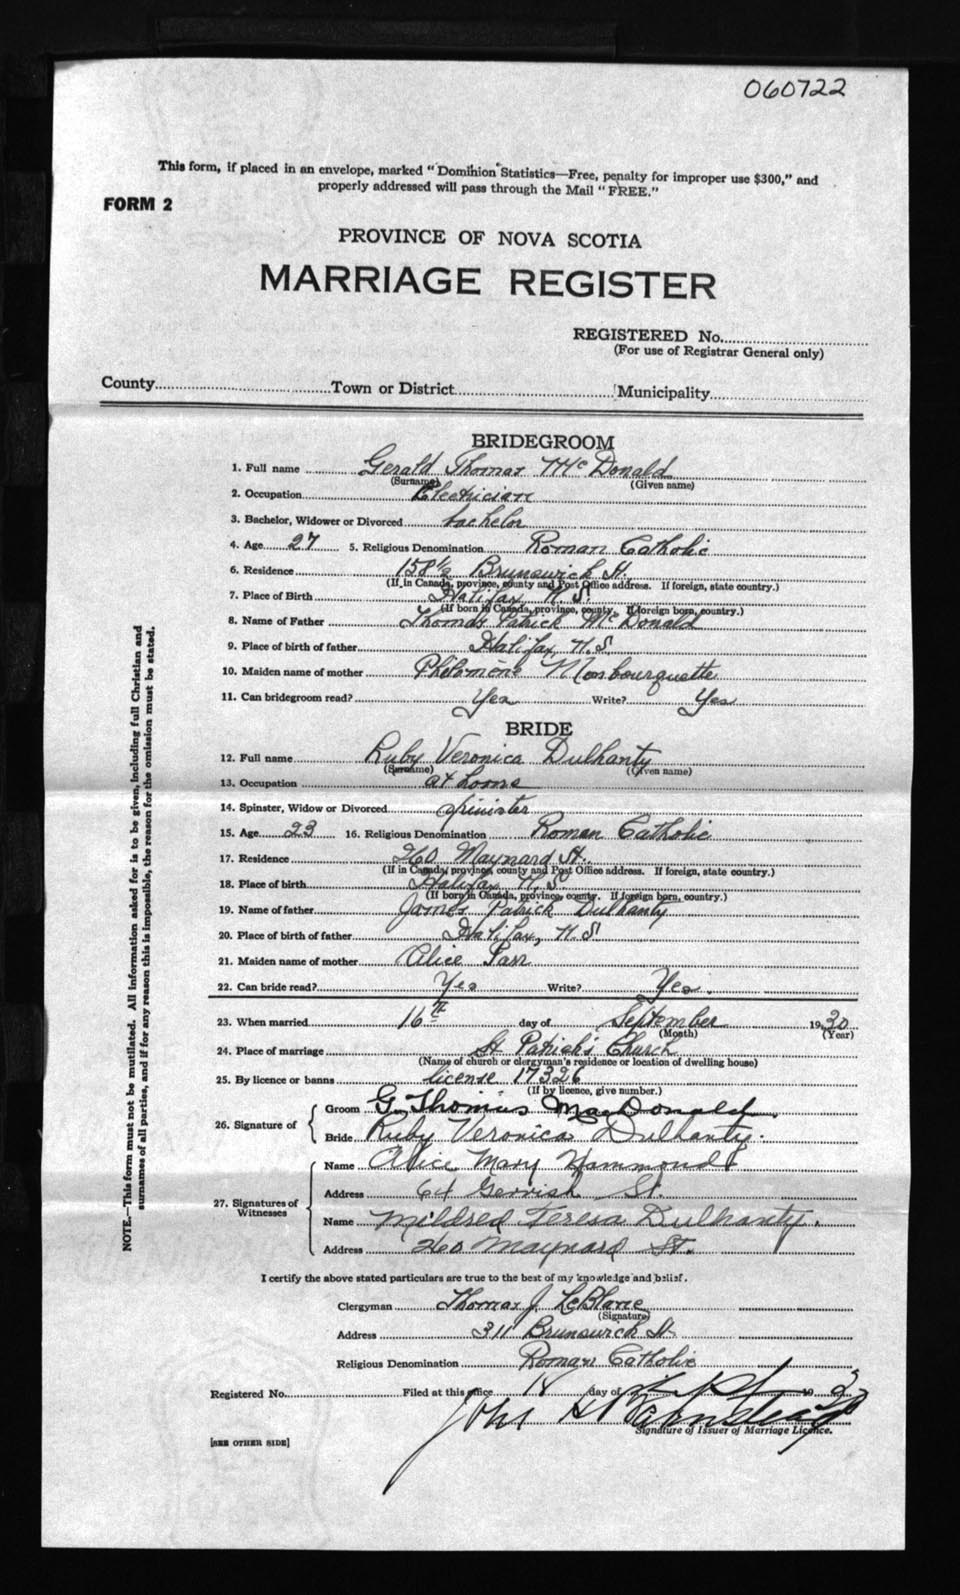 060722
This form, if placed in an envelope, marked "Dominion Statistics—Free, penalty for improper use $300," and
properly addressed will pass through the Mail "FREE."
FORM 2
PROVINCE OF NOVA SCOTIA
MARRIAGE REGISTER
REGISTERED No.
(For use of Registrar General only)
County Town or District Municipality
BRIDEGROOM
1. Full name Gerald Thomas McDonald
(Surname) (Given name)
2. Occupation Electrician
3. Bachelor, Widower or Divorced bachelor
4. Age 27 5. Religious Denomination Roman Catholic
6. Residence 158½ Brunswick St.
(If in Canada, province, county and Post Office address. If foreign, state country.)
7. Place of Birth Halifax N.S.
(If born in Canada, province, county. If foreign born, country.)
8. Name of Father Thomas Patrick McDonald
9. Place of birth of father Halifax, N.S.
10. Maiden name of mother Philomene Mombourquette
11. Can bridegroom read? Yes Write? Yes
BRIDE
12. Full name Ruby Veronica Dulhanty
(Surname) (Given name)
13. Occupation at home
14. Spinster, Widow or Divorced spinster
15. Age 23 16. Religious Denomination Roman Catholic
17. Residence 260 Maynard St.
(If in Canada, province, county and Post Office address. If foreign, state country.)
18. Place of birth Halifax N.S.
(If born in Canada, province, county. If foreign born, country.)
19. Name of father James Patrick Dulhanty
20. Place of birth of father Halifax, N.S
21. Maiden name of mother Alice
22. Can bride read? Yes Write? Yes.
23. When married 16th day of September 1930
(Month) (Year)
24. Place of marriage St Patrick's Church
(Name of church or clergyman's residence or location of dwelling house)
25. By licence or banns license 17326
(If by licence, give number.)
26. Signature of
Groom G. Thomas MacDonald.
Bride Ruby Veronica Dulhanty.
27. Signatures of Witnesses
Name Alice Mary Hammond
Address 64 Gerrish St.
Name Mildred Teresa Dulhanty.
Address 260 Maynard St.
I certify the above stated particulars are true to the best of my knowledge and belief.
Clergyman Thomas J. LeBlanc
(Signature)
Address 311 Brunswick St
Religious Denomination Roman Catholic
Registered No. Filed at this office 18 day of Sept 1930
John
Signature of Issuer of Marriage Licence.
[SEE OTHER SIDE]
NOTE.—This form must not be mutilated. All information asked for is to be given, including full Christian and
surnames of all parties, and if for any reason this is impossible, the reason for the omission must be stated.